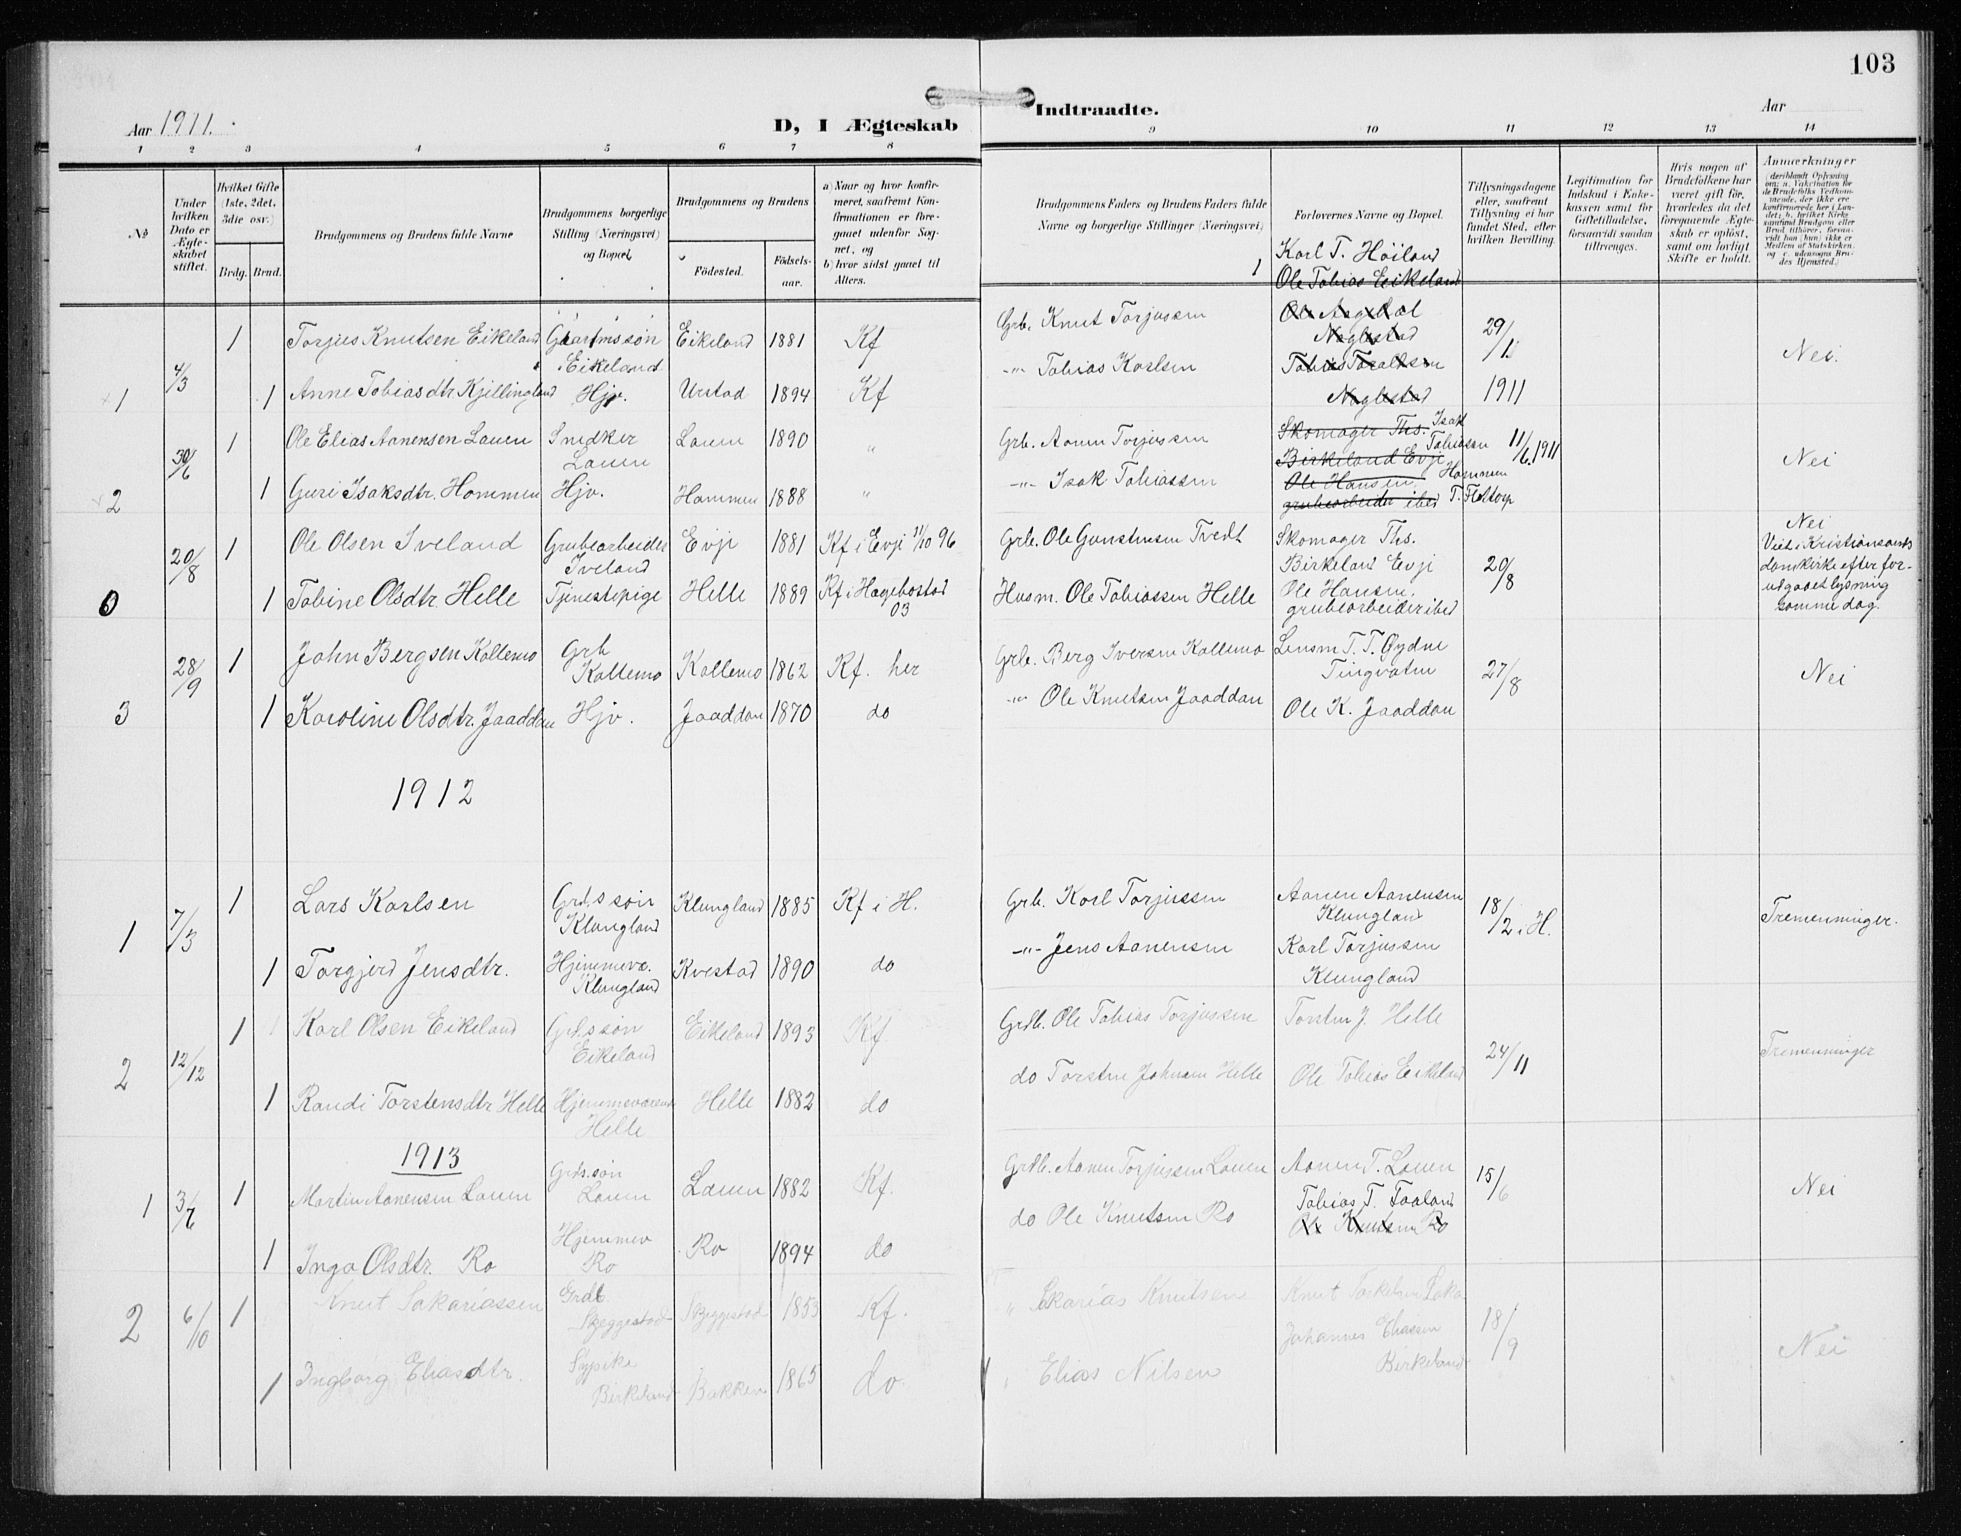 103
Aar 1911.
D, I Ægteskab
Indtraadte.
Aar
1 2 3 4 5 6 7 8
9 10 11 12 13 14
No
Under hvilken Dato er Ægteskabet stiftet.
Hvilket Gifte (1ste, 2det, 3die osv.)
Brdg. Brud.
Brudgommens og Brudens fulde Navne
Brudgommens borgerlige Stilling (Næringsvei) og Bopæl.
Brudgommens og Brudens
Fødested.
Fødselsaar.
a) Naar og hvor konfirmeret, saafremt Konfirmationen er foregaaet udenfor Sognet, og
b) hvor sidst gaaet til Alters.
Brudgommens Faders og Brudens Faders fulde Navne og borgerlige Stillinger (Næringsvei)
Forlovernes Navne og Bopæl.
Tillysningsdagene eller, saafremt Tillysning ei har fundet Sted, efter hvilken Bevilling.
Legitimation for Indskud i Enkekassen samt for Giftetilladelse, forsaavidt saadan tiltrænges.
Hvis nogen af Brudefolkene har været gift før, hvorledes da det foregaaende Ægteskab er opløst, samt om lovligt Skifte er holdt.
Anmærkninger
(deriblandt Oplysning om: a. Vakcination for de Brudefolks Vedkommende, der ikke ere konfirmerede her i Landet; b. hvilket Kirkesamfund Brudgom eller Brud tilhører, forsaavidt han (hun) ikke er Medlem af Statskirken, og c. udensogns Brudes Hjemsted.)
1 Karl T. Høiland
Ole Tobias Eikeland
1 4/3
1 Torjus Knutsen Eikeland Gaardmssøn Eikeland Eikeland 1881 Kf
Grb. Knut Torjussen
Naglestad
29/1 1911
Nei.
1 Anne Tobiasdtr Kjillingland Hjv. Urstad 1894 Kf
-"- Tobias Karlsen
Naglestad
2 30/6
1 Ole Elias Aanensen Lauen Snedker Lauen Lauen 1890 "
Grb. Aanen Torjussen
Skomager Ths. Isak Tobiassen
Birkeland Evje
11/6 1911
Nei
1 Guri Isaksdtr. Hommen Hjv. Hommen 1888 "
-"- Isak Tobiassen
Ole Hansen. Hommen
grubearbeider ibid T. Flottorp
0 20/8
1 Ole Olsen Iveland Grubearbeider Iveland Evje 1881 Kf i Evje 11/10 96
Grb. Ole Gunstensen Tvedt
Skomager Ths. Birkeland Evje
20/8
Nei
Viet i Kristiansands domkirke efter forudgaaet lysning samme dag.
1 Tobine Olsdtr. Helle Tjenestepige Helle 1889 Kf i Hægebostad 03
Husm. Ole Tobiassen Helle
Ole Hansen. grubearbeider ibid
3 28/9
1 John Bergsen Kollemo Grb Kollemo Kollemo 1862 Kf. her
Grb. Berg Iversen Kollemo
Lensm T. T. Øydne Tingvatn
27/8
Nei
1 Karoline Olsdtr. Jaaddan Hjv. Jaaddan 1870 do
-"- Ole Knutsen Jaaddan
Ole K. Jaaddan
1912
1 7/3
1 Lars Karlsen Grd.s søn Klungland Klungland 1885 Kf i H.
Grb. Karl Torjussen
Aanen Aanensen Klungland
18/2 i H.
Tremenninger.
1 Torgjerd Jensdtr. Hjemmevæ. Klungland Kvestad 1890 do
-"- Jens Aanensen
Karl Torjussen Klungland
2 12/12
1 Karl Olsen Eikeland Grdssøn Eikeland Eikeland 1893 Kf
Grdb. Ole Tobias Torjussen
Torsten J. Helle
24/11
Tremenninger
1 Randi Torstensdtr Helle Hjemmeværende Helle Helle 1882 do
do Torsten Johnsen Helle
Ole Tobias Eikeland
1913
1 3/7 6
1 Martin Aanensen Lauen Grds.søn Lauen Lauen 1882 Kf.
Grdb. Aanen Torjussen Lauen
Aanen T. Lauen
15/6
Nei
1 Inga Olsdtr. Ro Hjemmev Ro Ro 1894 do
do Ole Knutsen Ro
Tobias T. Faaland
Ole Knutsen Ro
2 6/10
1 Knut Sakariassen Grdb. Skeggestad Skeggestad 1853 Kf.
" Sakarias Knutsen
Knut
18/9
Nei
1 Ingborg Eliasdtr. Birkeland Bakken 1865 do.
" Elias Nilsen
Johannes Eliassen Birkeland